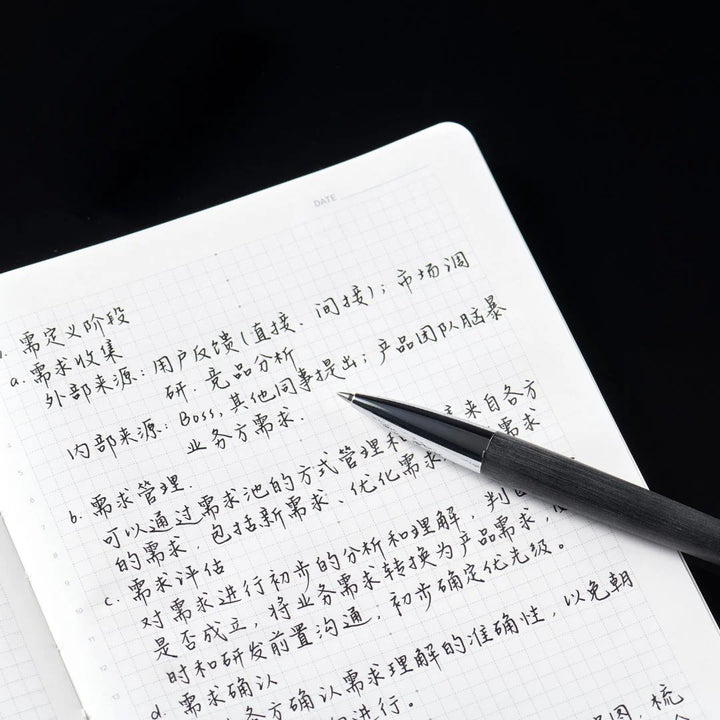 DATE
需定义阶段
a. 需求收集
外部来源：用户反馈(直接、间接)；市场调
研、竞品分析
内部来源：Boss, 其他同事提出；产品团队脑暴
业务方需求.
b. 需求管理.
可以通过需求池的方式管理和 来自各方
的需求，包括新需求、优化需求 需求
c. 需求评估
对需求进行初步的分析和理解，判
是否成立，将业务需求转换为产品需求，
时和研发前置沟通，初步确定优先级。
d. 需求确认
各方确认需求理解的准确性，以免朝
进行。
图，梳